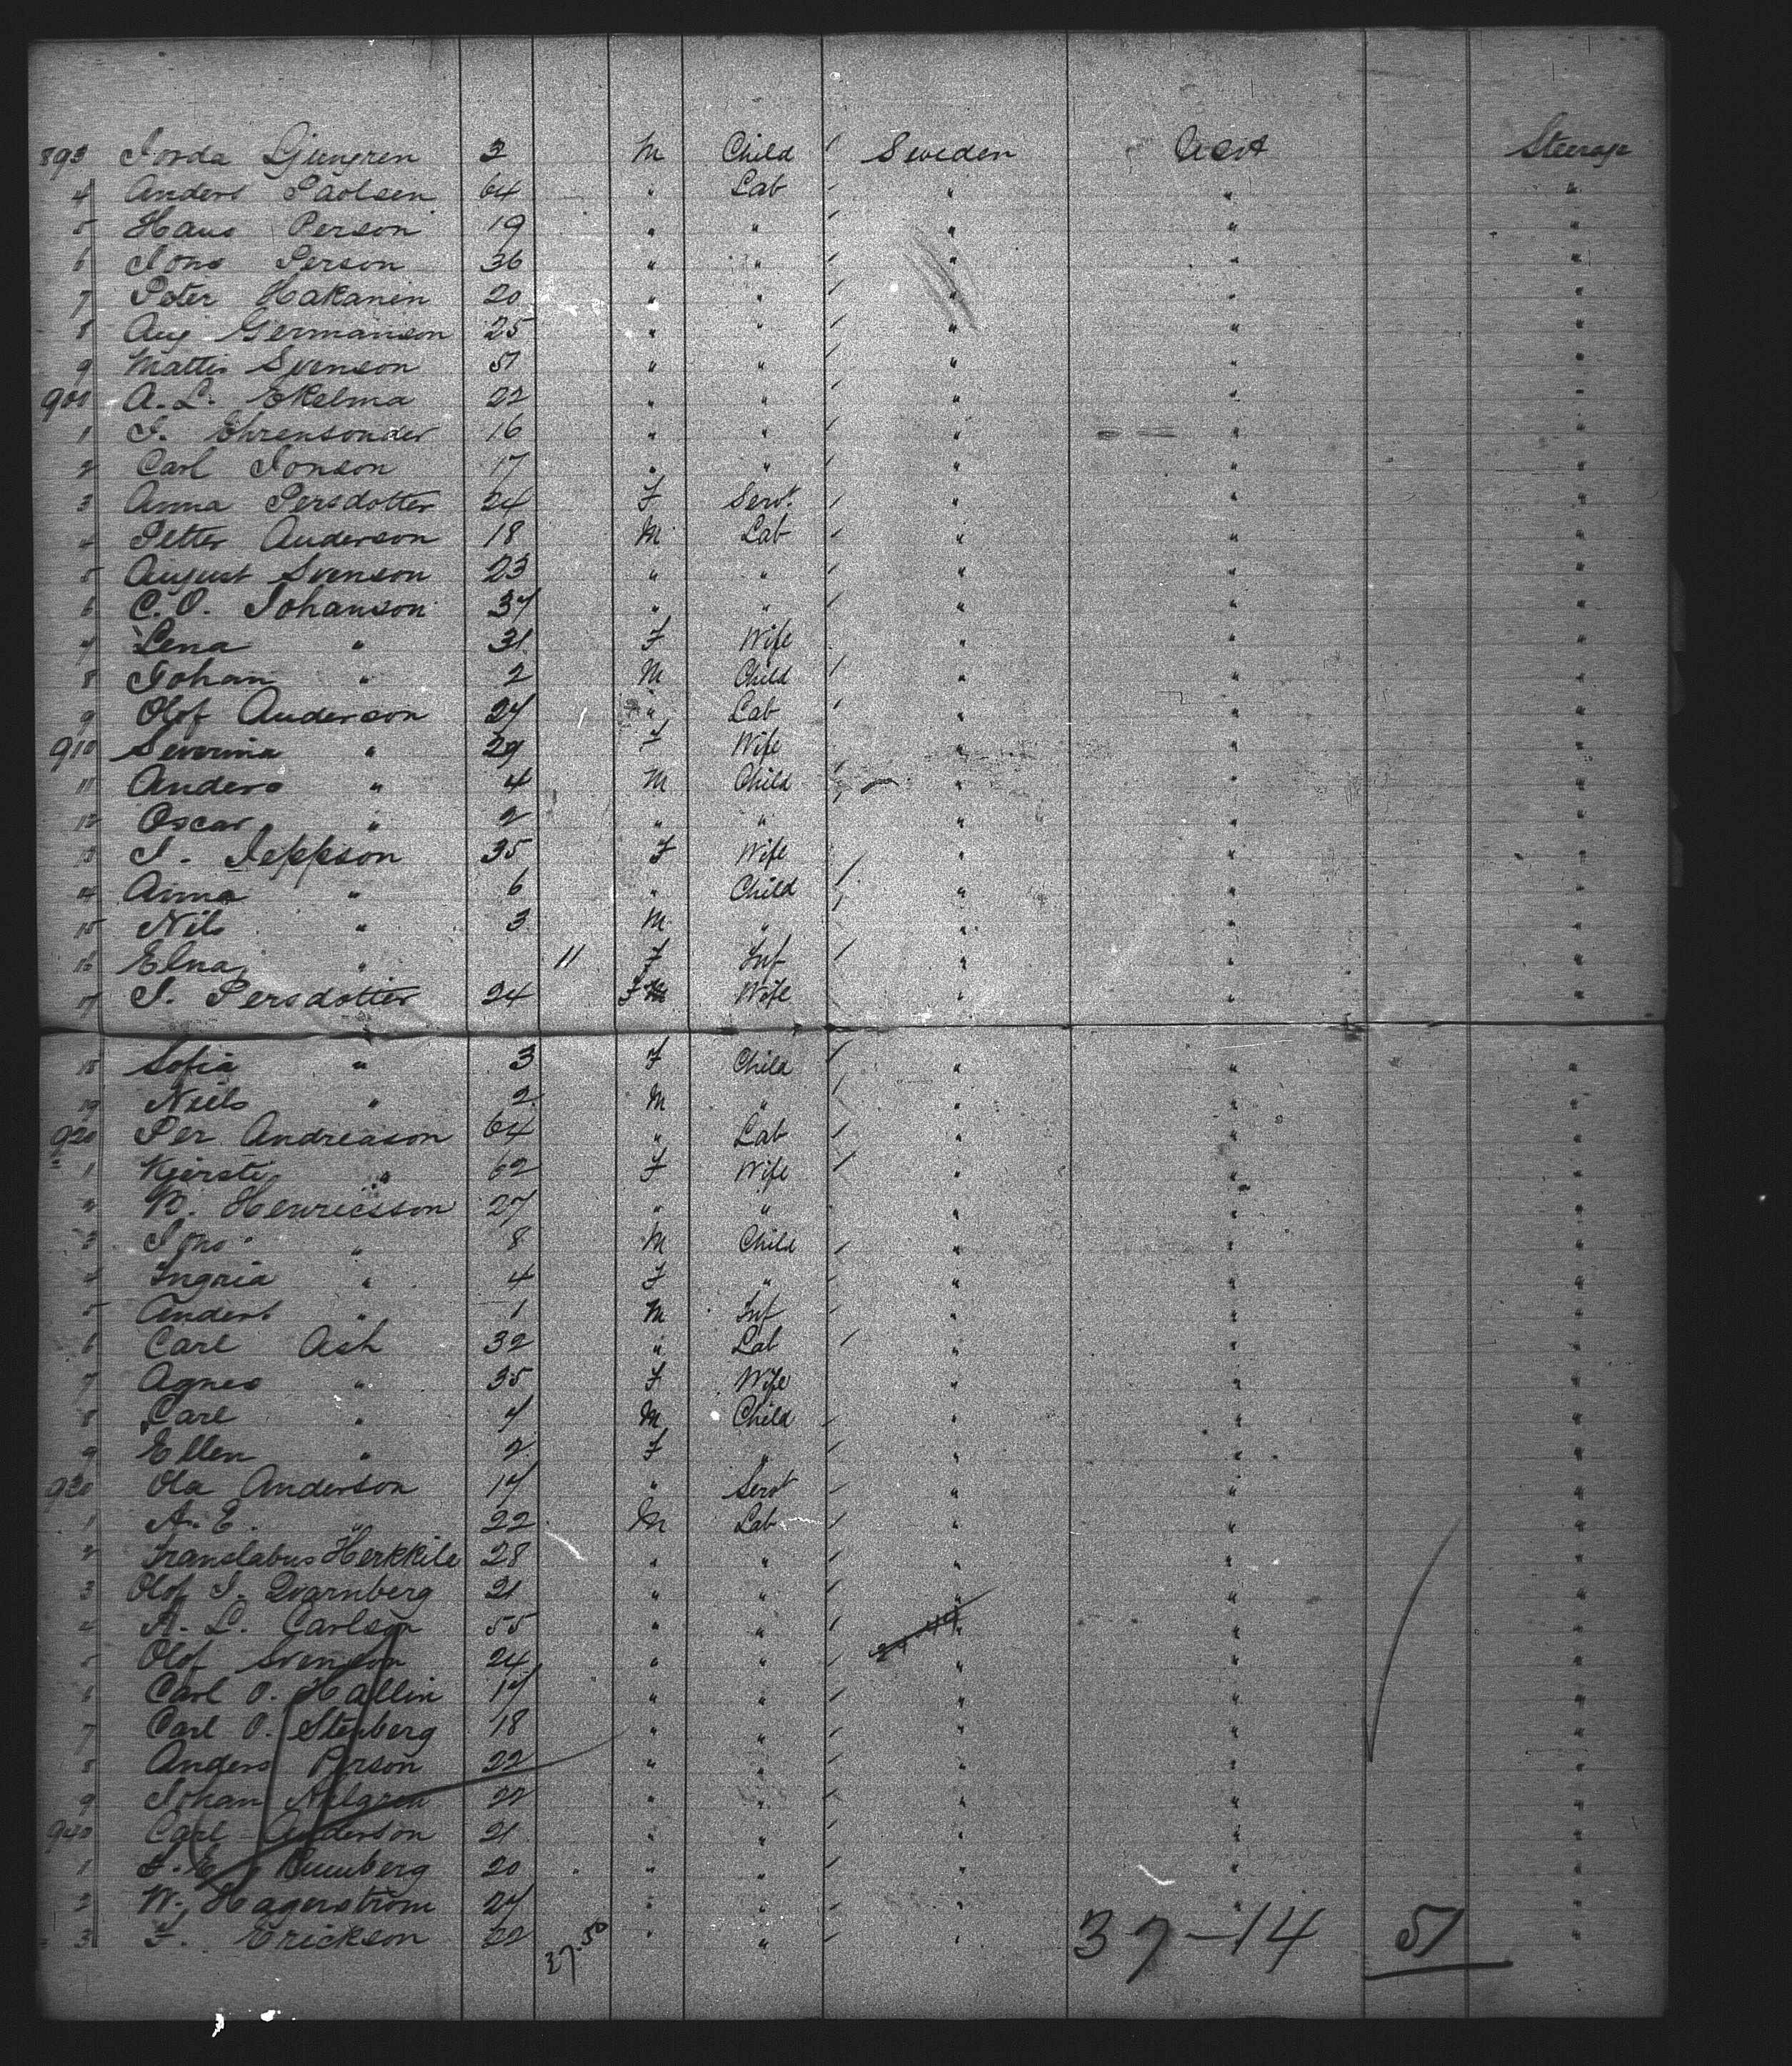 893 Jorda Ljungren 3 M Child Sweden West Steerage
4 Anders Paolsen 64 " Lab " " "
5 Hans Person 19 " " " " "
6 Jons Person 36 " " " " "
7 Peter Hakanin 20 " " " " "
8 Aug Germanson 25 " " " " "
9 Mattis Svenson 51 " " " " "
900 A. L. Ekelma 22 " " " " "
1 J. Ehrensonder 16 " " " " "
2 Carl Jonson 17 " " " " "
3 Anna Persdotter 24 F Servt " " "
4 Petter Anderson 18 M Lab " " "
5 August Svenson 23 " " " " "
6 C. O. Johanson 37 " " " " "
7 Lena " 31 F Wife " " "
8 Johan " 2 M Child " " "
9 Olof Anderson 27 " Lab " " "
910 Severina " 29 F Wife " " "
11 Anders " 4 M Child " " "
12 Oscar " 2 " " " " "
13 J. Jeppson 35 F Wife " " "
14 Anna " 6 " Child " " "
15 Nils " 3 M " " " "
16 Elna " 11 F Inf " " "
17 J. Persdotter 24 F Wife " " "
18 Sofia " 3 F Child " " "
19 Niels " 2 M " " " "
920 Per Andreason 64 " Lab " " "
1 Kjersti " 62 F Wife " " "
2 B. Henricsson 27 " " " " "
3 Jons " 8 M Child " " "
4 Ingria " 4 F " " " "
5 Anders " 1 M Inf " " "
6 Carl Ash 32 " Lab " " "
7 Agnes " 35 F Wife " " "
8 Carl " 7 M Child " " "
9 Ellen " 2 F " " " "
930 Ola Anderson 17 " Servt " " "
1 A. E. " 22 M Lab " " "
2 Franslabus Herkkile 28 " " " " "
3 Olof J. Qvarnberg 21 " " " " "
4 A. L. Carlson 55 " " " " "
5 Olof Svenson 24 " " " " "
6 Carl O. Hallin 17 " " " " "
7 Carl O. Stenberg 18 " " " " "
8 Anders Person 22 " " " " "
9 Johan Ahlgren 22 " " " " "
940 Carl Anderson 21 " " " " "
1 20 " " " " "
2 W. Hagerstrom 27 " " " " "
3 F. Erickson 22 " " " " "
37.50 37-14 51